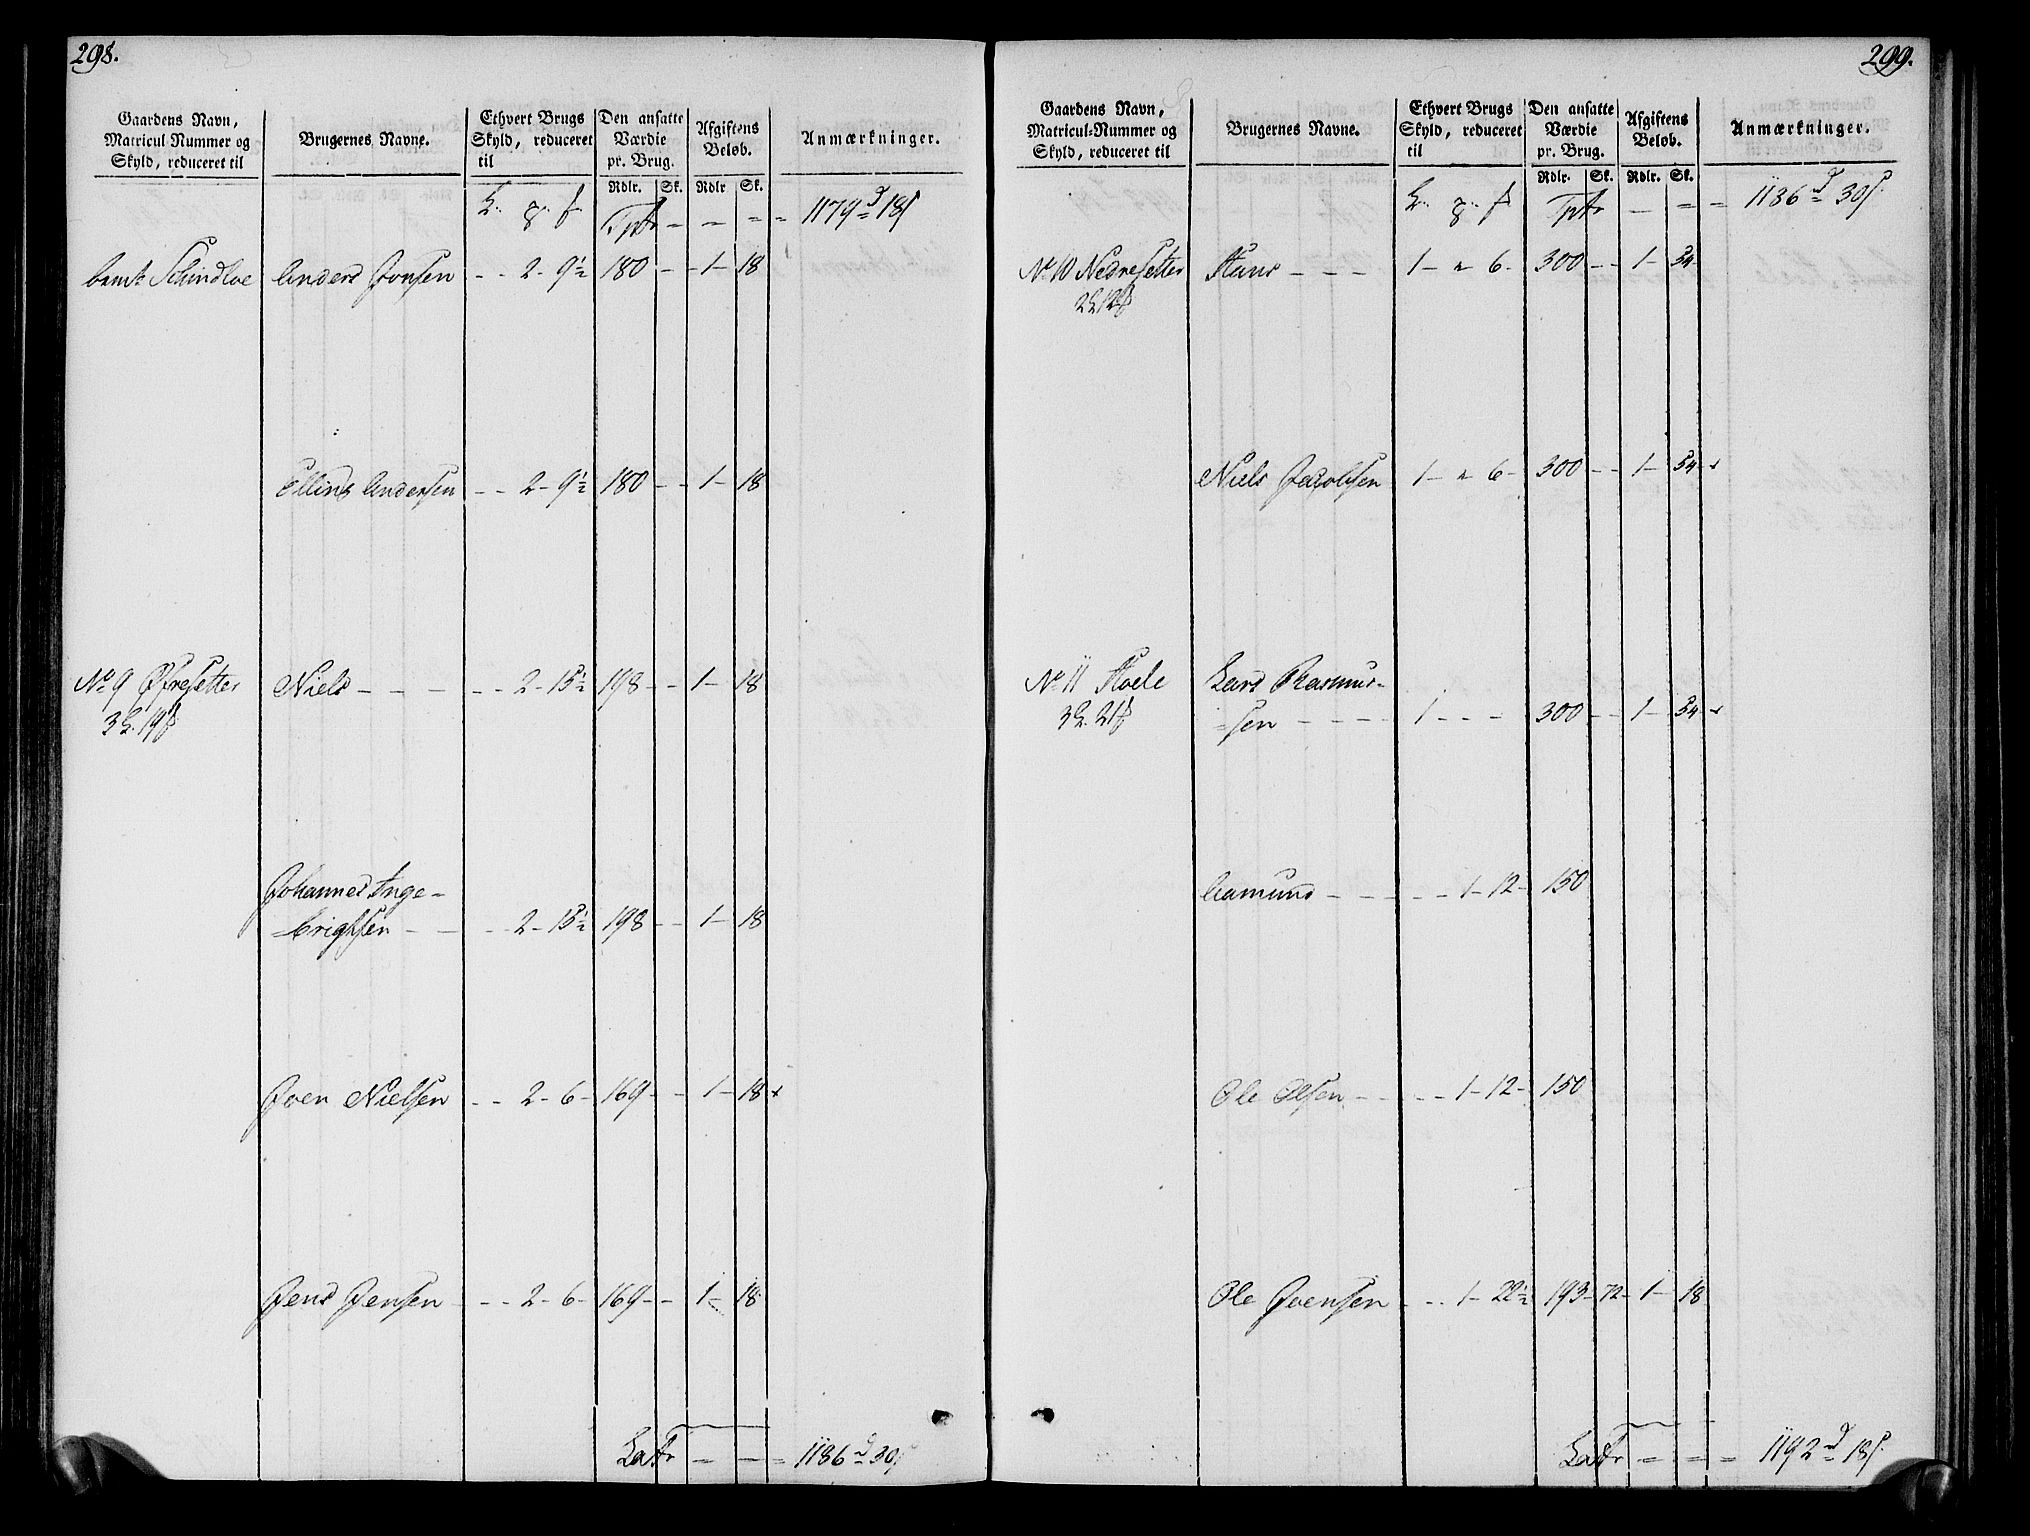 298.
Gaardens Navn, Matricul Nummer og Skyld, reduceret til
Brugernes Navne.
Ethvert Brugs Skyld, reduceret til
Den ansatte Værdie pr. Brug.
Afgiftens Beløb.
Anmærkninger.
Rdlr. Sk. Rdlr Sk.
Tptr - - - - 1179 d 18 s
Anders - - 2 - 9½ 180 - - 1 - 18
Elling Andersen - - 2 - 9½ 180 - - 1 - 18
No 9 Øfresetter Niels - - - - - 2 - 15½ 198 - - 1 - 18
3 L. 19
Johannes Inge-
brigtsen - - - - 2 - 15½ 198 - - 1 - 18
Joen Nielsen - - 2 - 6 - 169 - - 1 - 18
Jens Jensen - - 2 - 6 - 169 - - 1 - 18
Latr - - - 1186 d 30 s
299.
Gaardens Navn, Matricul-Nummer og Skyld, reduceret til
Brugernes Navne.
Ethvert Brugs Skyld, reduceret til
Den ansatte Værdie pr. Brug.
Afgiftens Beløb.
Anmærkninger.
Rdlr. Sk. Rdlr. Sk.
Tptr - - - 1186 d 30 s
No 10 Nedresetter Hans - - - 1 - " 6 - 300 - - 1 - 34
2 L 12
Niels Jacobsen 1 - " 6 - 300 - - 1 - 34
No 11 Hoele Lars Rasmus-
3 L. 21
sen - - - - 1 - - - 300 - - 1 - 34
Aamund - - - - - 1 - 12 - 150
Ole Olsen - - - - 1 - 12 - 150
Ole Joensen - - - 1 - 22½ 193 - 72 - 1 - 18
Latr - - - 1192 d 18 s